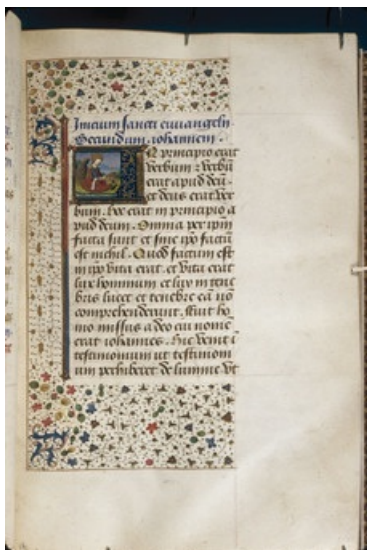 Inicium sancti euuangelii
Secundum iohannem.
In principio erat
verbum ⁊ verbū
erat apud deū.
et deus erat ver
bum. hoc erat in principio a
pud deum. Omnia per ipm̄
facta sunt et sine ipo factū
est nichil. Quod factum est
in ipo vita erat. et vita erat
lux hominum et lux in tene
bris lucet et tenebre eā nō
comprehenderunt. fuit ho
mo missus a deo cui nomē
erat iohannes. hic venit ī
testimonium ut testimoni
um perhiberet de lumine vt